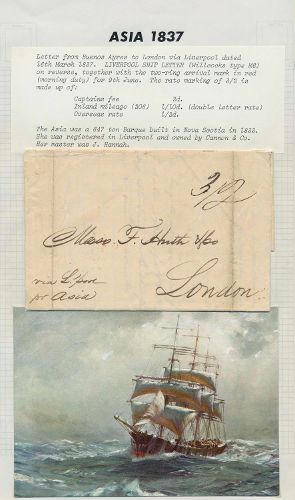 ASIA 1837
Letter from Buenos Ayres to London via Liverpool dated
16th March 1837. LIVERPOOL SHIP LETTER (Willcocks type
on reverse, together with the two-ring arrival mark in red
(morning duty) for 9th June. The rate marking of 3/2 is
made up of:
Captains fee 2d.
Inland mileage (208) 1/10d. (double Letter rate)
Overseas rate
The Asia was a 647 ton Barque built in Nova Scotia in
She was registered in Liverpool and owned by Cannon & Co.
Her master was J. Hannah.
3/2
Messrs F. Huth & Co
London
via L'pool
pr Asia